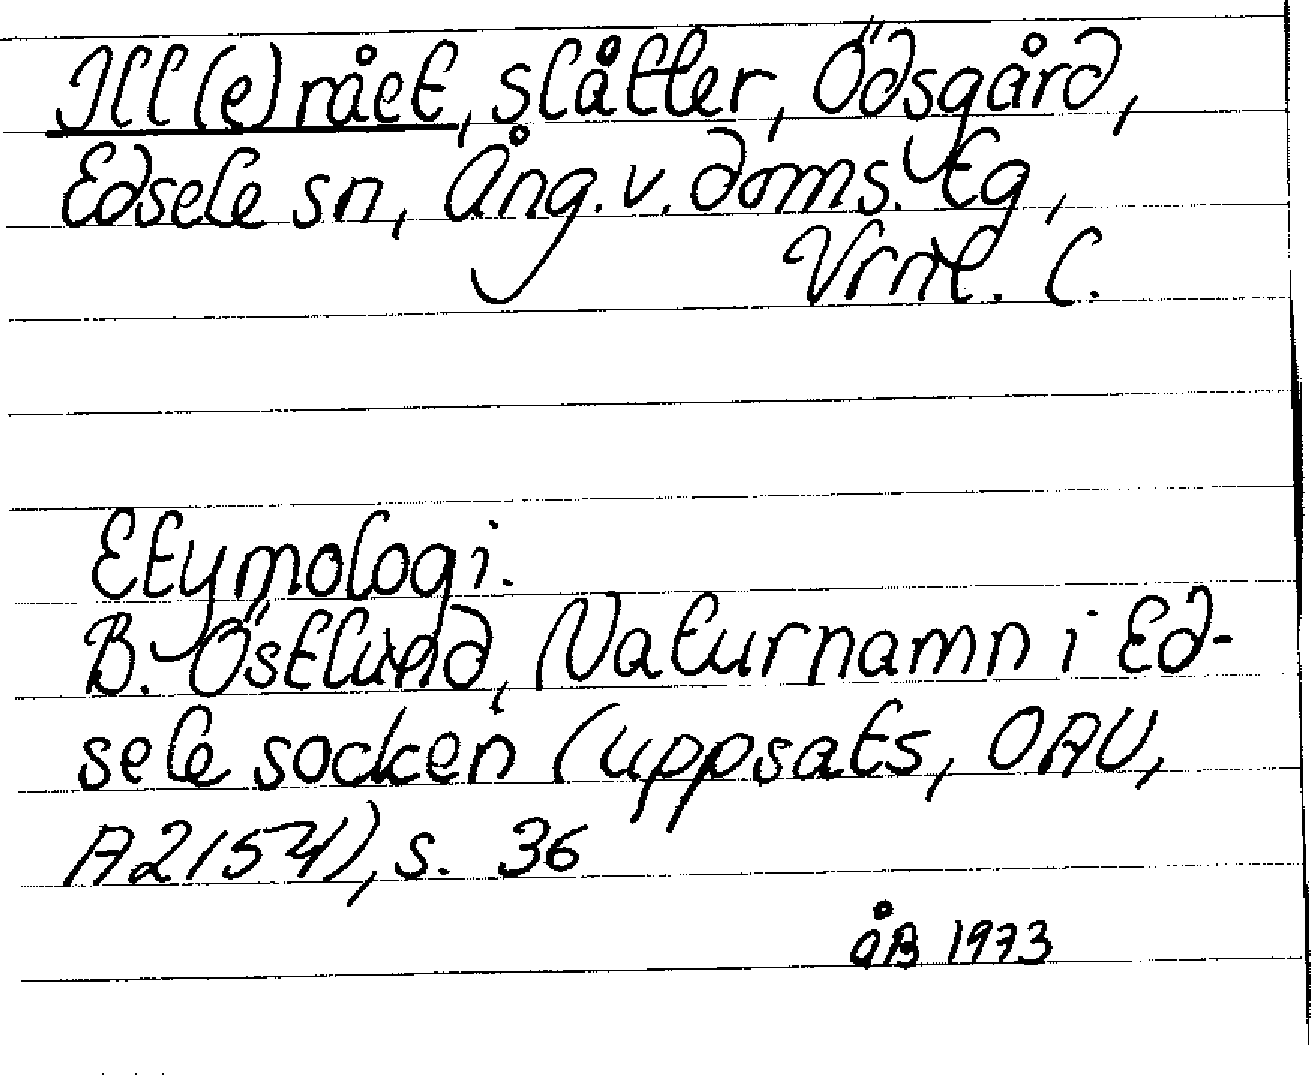 Ill(e)rået, slåtter, Ödsgård,
Edsele sn, Ång. v. doms. tg,
Vrnl. C.
Etymologi.
B. Östlund, Naturnamn i Ed-
sele socken (uppsats, OAU,
A2154), s. 36
åB 1973